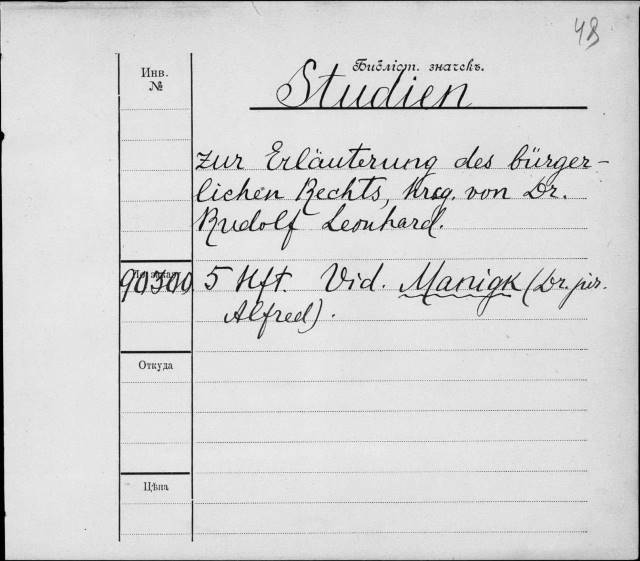 48
Инв.
№
Библіот. значекъ.
Studien
zur Erläuterung des bürger-
lichen Rechts, hrsg. von Dr.
Rudolf Leonhard.
90300
5 Hft. Vid. Manigk (Dr. jur.
Alfred).
Откуда
Цѣна